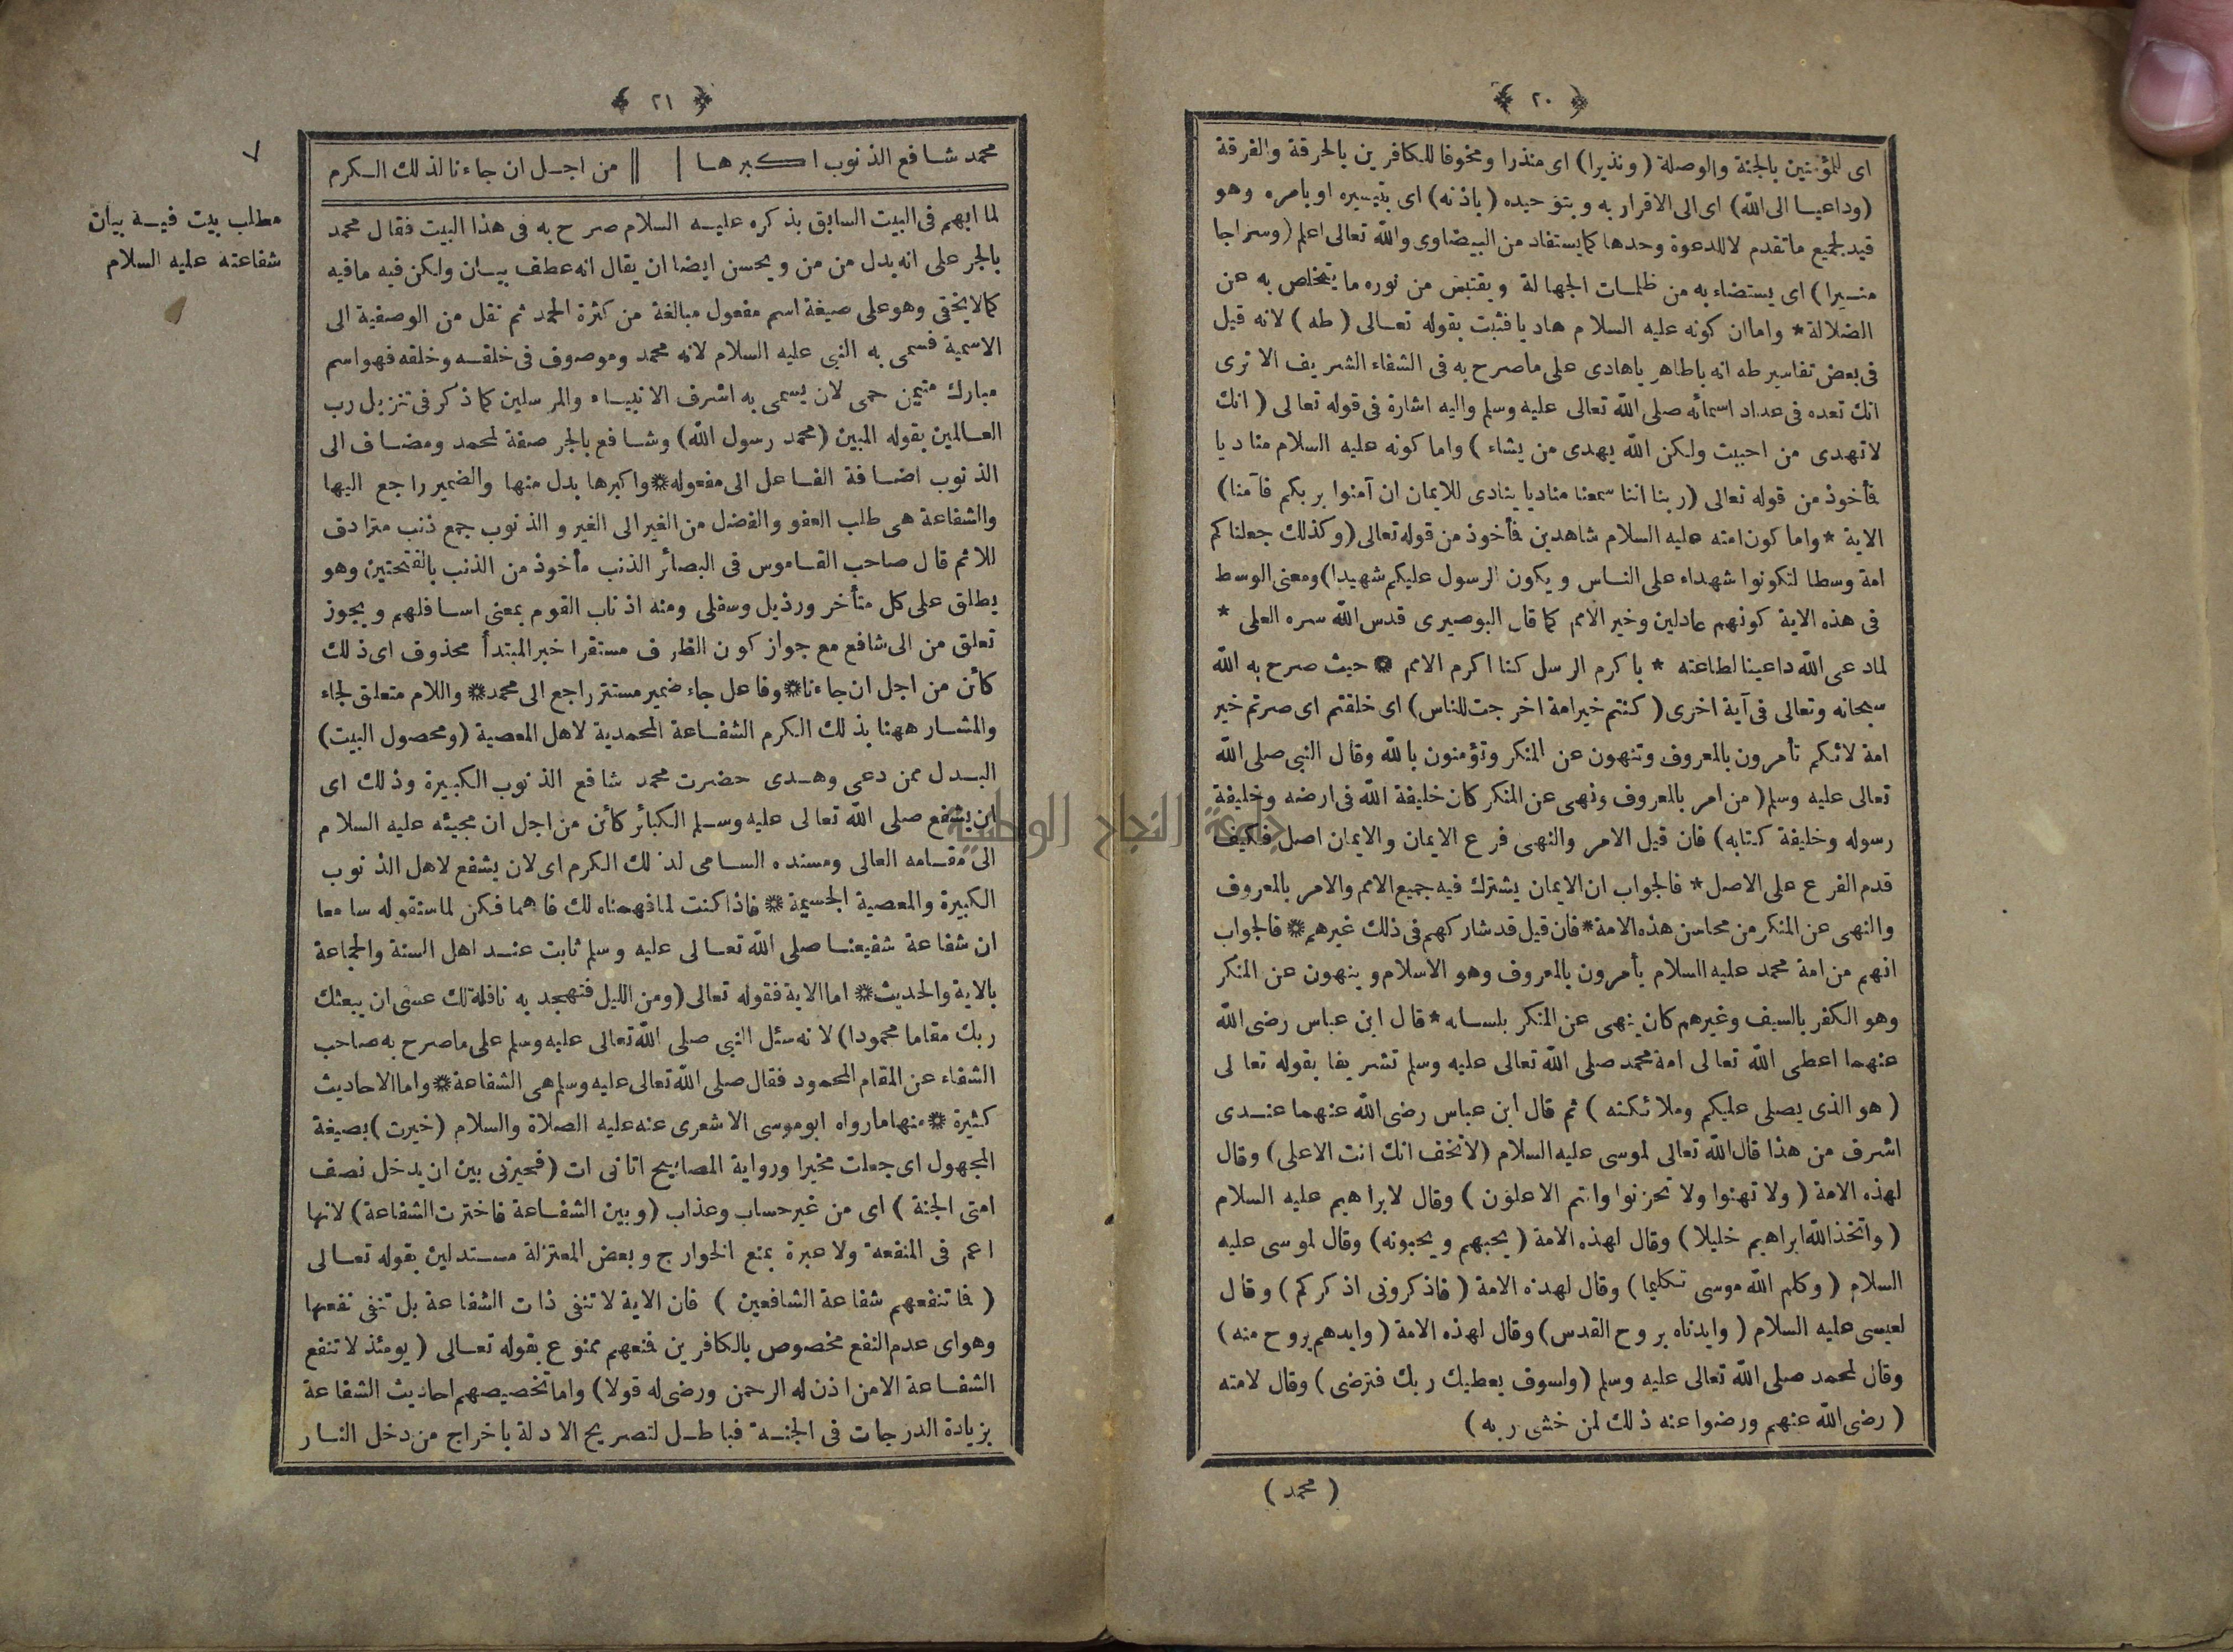 ﴿ ٢٠ ﴾
اى للمؤمنين بالجنة والوصلة (ونذيرا) اى منذرا ومخوفا للكافرين بالحرقة والفرقة
(وداعيا الى الله) اى الى الاقرار به وبتوحيده (باذنه) اى بتيسيره او بامره وهو
قيد لجميع ماتقدم لاللدعوة وحدها كما يستفاد من البيضاوى والله تعالى اعلم (وسراجا
منيرا) اى يستضاء به من ظلمات الجهالة ويقتبس من نوره ما يتخلص به عن
الضلالة * واما ان كونه عليه السلام هاديا فثبت بقوله تعالى (طه) لانه قيل
فى بعض تفاسير طه انه ياطاهر ياهادى على ماصرح به فى الشفاء الشريف الا ترى
انك تعده فى عداد اسمائه صلى الله تعالى عليه وسلم واليه اشارة فى قوله تعالى (انك
لاتهدى من احببت ولكن الله يهدى من يشاء) واما كونه عليه السلام مناديا
فمأخوذ من قوله تعالى (ربنا اننا سمعنا مناديا ينادى للايمان ان آمنوا بربكم فآمنا)
الاية * واما كون امته عليه السلام شاهدين فمأخوذ من قوله تعالى (وكذلك جعلناكم
امة وسطا لتكونوا شهداء على الناس ويكون الرسول عليكم شهيدا) ومعنى الوسط
فى هذه الاية كونهم عادلين وخير الامم كما قال البوصيرى قدس الله سره العلى *
لما دعى الله داعينا لطاعته * باكرم الرسل كنا اكرم الامم * حيث صرح به الله
سبحانه وتعالى فى آية اخرى (كنتم خير امة اخرجت للناس) اى خلقتم اى صرتم خير
امة لانكم تأمرون بالمعروف وتنهون عن المنكر وتؤمنون بالله وقال النبى صلى الله
تعالى عليه وسلم (من امر بالمعروف ونهى عن المنكر كان خليفة الله فى ارضه وخليفة
رسوله وخليفة كتابه) فان قيل الامر والنهى فرع الايمان والايمان اصل فكيف
قدم الفرع على الاصل * فالجواب ان الايمان يشترك فيه جميع الامم والامر بالمعروف
والنهى عن المنكر من محاسن هذه الامة * فان قيل قد شاركهم فى ذلك غيرهم * فالجواب
انهم من امة محمد عليه السلام يأمرون بالمعروف وهو الاسلام وينهون عن المنكر
وهو الكفر بالسيف وغيرهم كان ينهى عن المنكر بلسانه * قال ابن عباس رضى الله
عنهما اعطى الله تعالى امة محمد صلى الله تعالى عليه وسلم تشريفا بقوله تعالى
(هو الذى يصلى عليكم وملائكته) ثم قال ابن عباس رضى الله عنهما عندى
اشرف من هذا قال الله تعالى لموسى عليه السلام (لاتخف انك انت الاعلى) وقال
لهذه الامة (ولا تهنوا ولا تحزنوا وانتم الاعلون) وقال لابراهيم عليه السلام
(واتخذ الله ابراهيم خليلا) وقال لهذه الامة (يحبهم ويحبونه) وقال لموسى عليه
السلام (وكلم الله موسى تكليما) وقال لهذه الامة (فاذكرونى اذكركم) وقال
لعيسى عليه السلام (وايدناه بروح القدس) وقال لهذه الامة (وايدهم بروح منه)
وقال لمحمد صلى الله تعالى عليه وسلم (ولسوف يعطيك ربك فترضى) وقال لامته
(رضى الله عنهم ورضوا عنه ذلك لمن خشى ربه)
(محمد)
﴿ ٢١ ﴾
محمد شافع الذنوب اكبرها || من اجل ان جاءنا لذلك الكرم
لما ابهم فى البيت السابق بذكره عليه السلام صرح به فى هذا البيت فقال محمد
بالجر على انه بدل من من ويحسن ايضا ان يقال انه عطف بيان ولكن فيه مافيه
كما لايخفى وهو على صيغة اسم مفعول مبالغة من كثرة الحمد ثم نقل من الوصفية الى
الاسمية فسمى به النبى عليه السلام لانه محمد وموصوف فى خلقه وخلقه فهو اسم
مبارك متيمن حمى لان يسمى به اشرف الانبياء والمرسلين كما ذكر فى تنزيل رب
العالمين بقوله المبين (محمد رسول الله) وشافع بالجر صفة لمحمد ومضاف الى
الذنوب اضافة الفاعل الى مفعوله * واكبرها بدل منها والضمير راجع اليها
والشفاعة هى طلب العفو والفضل من الغير الى الغير والذنوب جمع ذنب مترادف
للاثم قال صاحب القاموس فى البصائر الذنب مأخوذ من الذنب بالفتحتين وهو
يطلق على كل متأخر ورذيل وسفلى ومنه اذناب القوم بمعنى اسافلهم ويجوز
تعلق من الى شافع مع جواز كون الظرف مستقرا خبر المبتدأ محذوف اى ذلك
كأن من اجل ان جاءنا * وفاعل جاء ضمير مستتر راجع الى محمد * واللام متعلق لجاء
والمشار ههنا بذلك الكرم الشفاعة المحمدية لاهل المعصية (ومحصول البيت)
البدل ممن دعى وهدى حضرت محمد شافع الذنوب الكبيرة وذلك اى
ان يشفع صلى الله تعالى عليه وسلم الكبائر كأن من اجل ان مجيئه عليه السلام
الى مقامه العالى ومسنده السامى لذلك الكرم اى لان يشفع لاهل الذنوب
الكبيرة والمعصية الجسيمة * فاذا كنت لما فهمناه لك فاهما فكن لما ستقوله سامعا
ان شفاعة شفيعنا صلى الله تعالى عليه وسلم ثابت عند اهل السنة والجماعة
بالاية والحديث * اما الاية فقوله تعالى (ومن الليل فتهجد به نافلة لك عسى ان يبعثك
ربك مقاما محمودا) لانه سئل النبى صلى الله تعالى عليه وسلم على ماصرح به صاحب
الشفاء عن المقام المحمود فقال صلى الله تعالى عليه وسلم هى الشفاعة * واما الاحاديث
كثيرة * منها مارواه ابوموسى الاشعرى عنه عليه الصلاة والسلام (خيرت) بصيغة
المجهول اى جعلت مخيرا ورواية المصابيح اتانى ات (فخيرنى بين ان يدخل نصف
امتى الجنة) اى من غير حساب وعذاب (وبين الشفاعة فاخترت الشفاعة) لانها
اعم فى المنفعة ولا عبرة بمنع الخوارج وبعض المعتزلة مستدلين بقوله تعالى
(فما تنفعهم شفاعة الشافعين) فان الاية لاتنفى ذات الشفاعة بل تنفى نفعها
وهو اى عدم النفع مخصوص بالكافرين فنعهم ممنوع بقوله تعالى (يومئذ لاتنفع
الشفاعة الا من اذن له الرحمن ورضى له قولا) واما تخصيصهم احاديث الشفاعة
بزيادة الدرجات فى الجنة فباطل لتصريح الادلة باخراج من دخل النار
٧
مطلب بيت فيه بيان
شفاعته عليه السلام
جامعة النجاح الوطنية